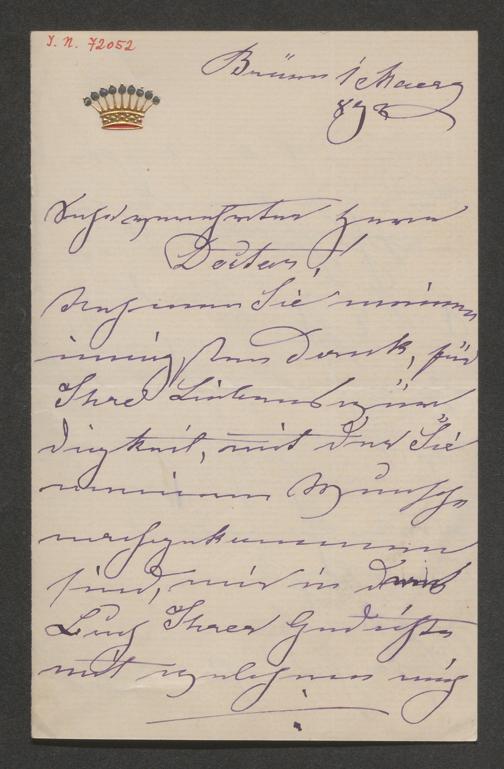 I. N. 72052
Brünn 1 Maerz
892
Sehr verehrter Herr
Doctor!
Nehmen Sie meinen
innigsten Dank, für
Ihre Liebenswür
digkeit, mit der Sie
meinem Wunsche
nachgekommen
sind, mir in das
Buch Ihrer Gedichte
mit